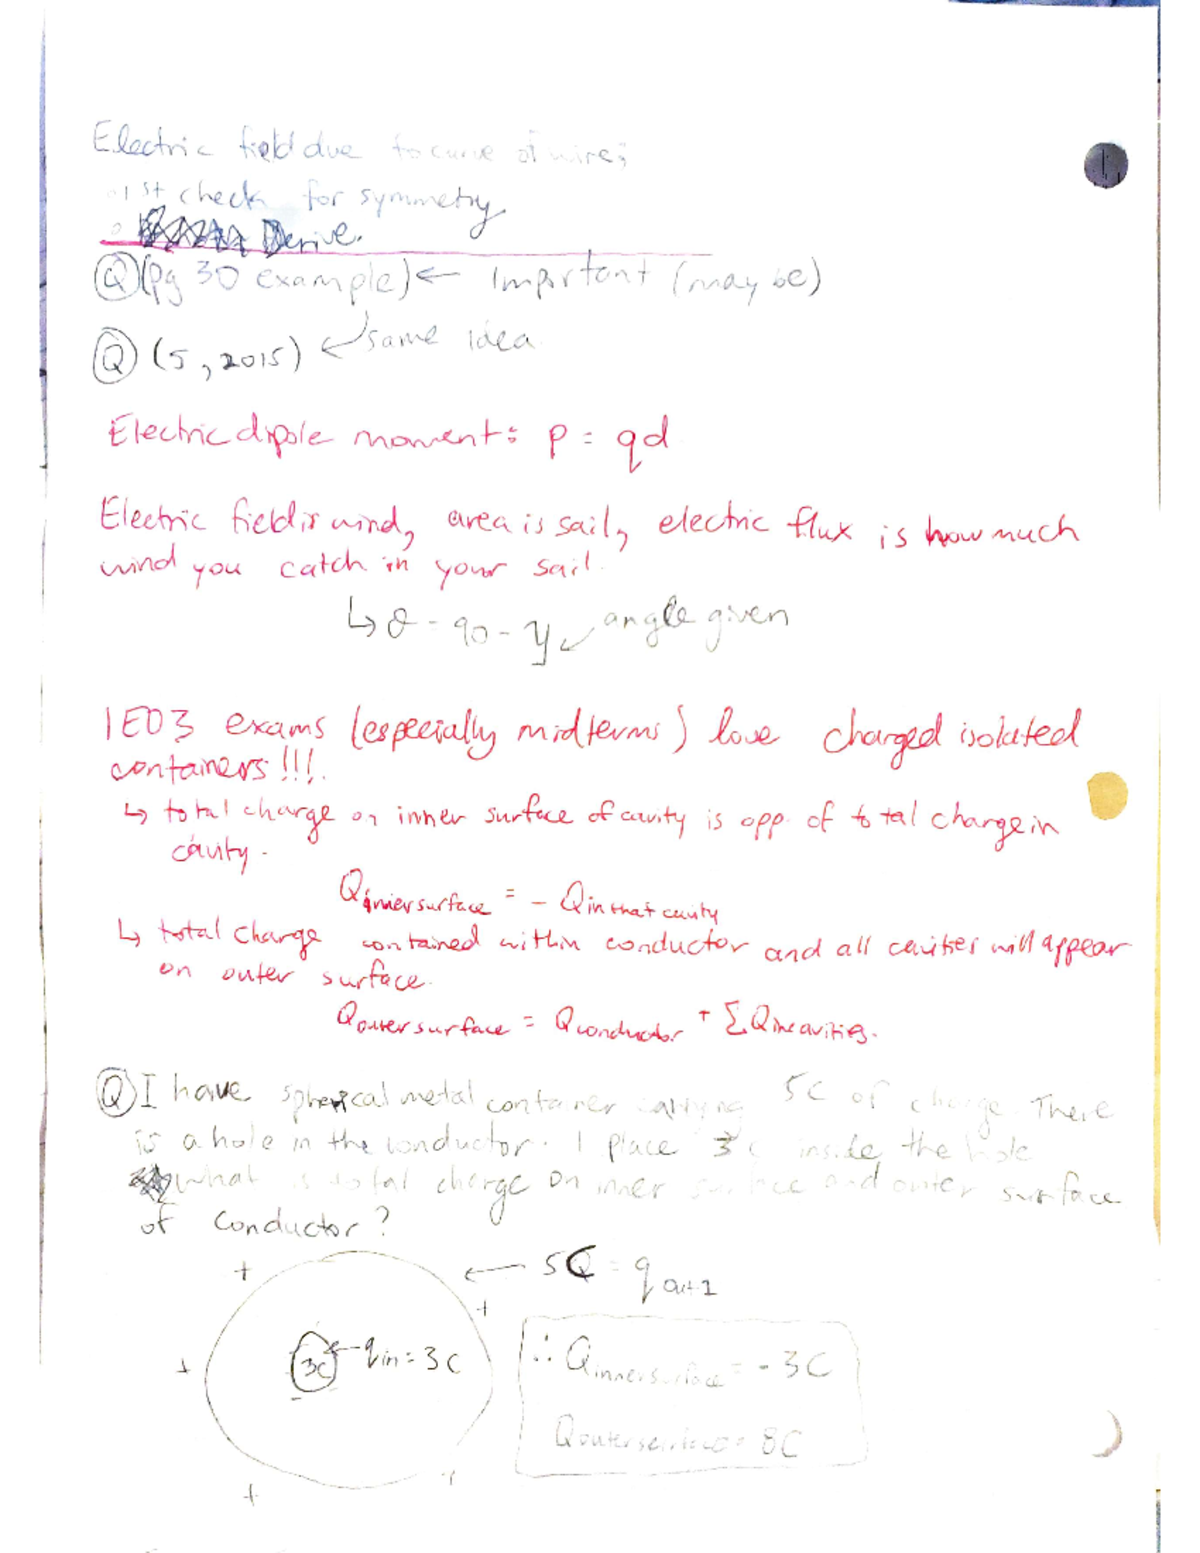 Electric field due to curve of wire;
1st check for symmetry
Derive.
Q (pg 30 example) ← Important (may be)
Q (5, 2015) ← same idea
Electric dipole moment: p = qd
Electric field is wind, area is sail, electric flux is how much
wind you catch in your sail.
↳ θ = 90 - y ↙ angle given
1E03 exams (especially midterms) love charged isolated
containers!!!.
↳ total charge on inner surface of cavity is opp. of total charge in
cavity.
Qinner surface = - Qin that cavity
↳ total charge contained within conductor and all cavities will appear
on outer surface.
Qouter surface = Qconductor + ΣQin cavities.
Q I have spherical metal container carrying 5C of charge. There
is a hole in the conductor. I place 3C inside the hole
what is total charge on inner surface and outer surface
of conductor?
+ ← 5C = q
+
+ 3C ← qin = 3C ∴ Qinner surface = - 3C
Qouter surface = 8C
+ +